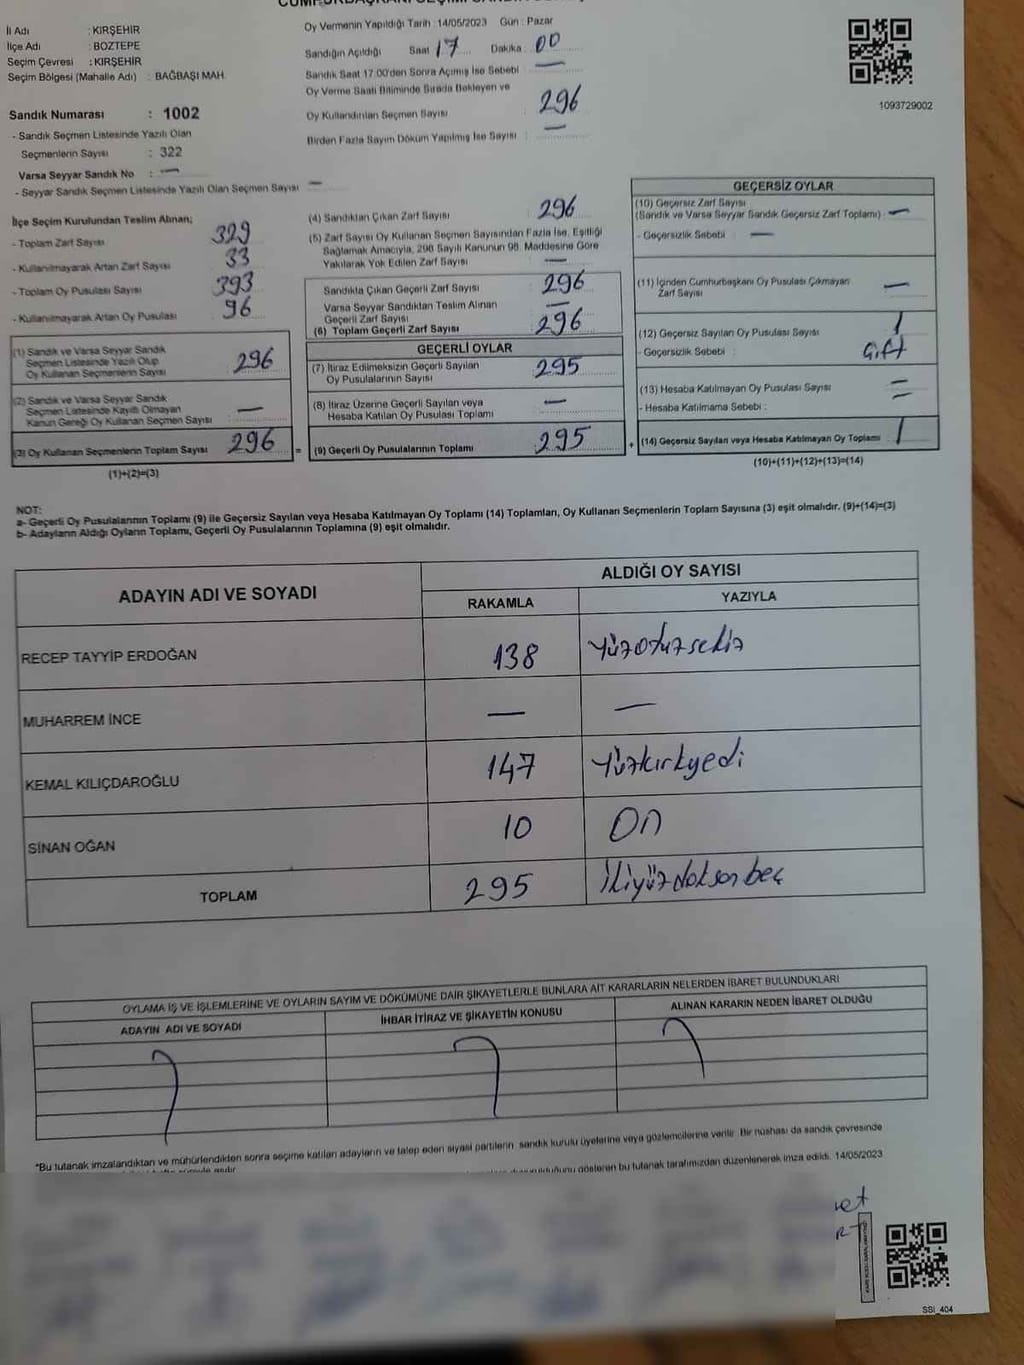 Oy Vermenin Yapıldığı Tarih : 14/05/2023 Gün : Pazar
İl Adı : KIRŞEHİR
İlçe Adı : BOZTEPE
Seçim Çevresi : KIRŞEHİR
Seçim Bölgesi (Mahalle Adı) : BAĞBAŞI MAH.
Sandığın Açıldığı Saat 17 Dakika : 00
Sandık Saat 17:00'den Sonra Açımış İse Sebebi : —
Oy Verme Saati Bitiminde Sırada Bekleyen ve
Oy Kullandırılan Seçmen Sayısı : 296
Birden Fazla Sayım Döküm Yapılmış İse Sayısı : —
1093729002
Sandık Numarası : 1002
- Sandık Seçmen Listesinde Yazılı Olan
Seçmenlerin Sayısı : 322
Varsa Seyyar Sandık No : —
- Seyyar Sandık Seçmen Listesinde Yazılı Olan Seçmen Sayısı —
İlçe Seçim Kurulundan Teslim Alınan;
- Toplam Zarf Sayısı 329
- Kullanılmayarak Artan Zarf Sayısı 33
- Toplam Oy Pusulası Sayısı 393
- Kullanılmayarak Artan Oy Pusulası 96
(1) Sandık ve Varsa Seyyar Sandık
Seçmen Listesinde Yazılı Olup
Oy Kullanan Seçmenlerin Sayısı 296
(2) Sandık ve Varsa Seyyar Sandık
Seçmen Listesinde Kayıtlı Olmayan
Kanun Gereği Oy Kullanan Seçmen Sayısı —
(3) Oy Kullanan Seçmenlerin Toplam Sayısı 296 =
(1)+(2)=(3)
(4) Sandıktan Çıkan Zarf Sayısı 296
(5) Zarf Sayısı Oy Kullanan Seçmen Sayısından Fazla İse, Eşitliği
Sağlamak Amacıyla, 298 Sayılı Kanunun 98. Maddesine Göre
Yakılarak Yok Edilen Zarf Sayısı —
Sandıkta Çıkan Geçerli Zarf Sayısı 296
Varsa Seyyar Sandıktan Teslim Alınan
Geçerli Zarf Sayısı —
(6) Toplam Geçerli Zarf Sayısı 296
GEÇERLİ OYLAR
(7) İtiraz Edilmeksizin Geçerli Sayılan
Oy Pusulalarının Sayısı 295
(8) İtiraz Üzerine Geçerli Sayılan veya
Hesaba Katılan Oy Pusulası Toplamı —
(9) Geçerli Oy Pusulalarının Toplamı 295 +
GEÇERSİZ OYLAR
(10) Geçersiz Zarf Sayısı
(Sandık ve Varsa Seyyar Sandık Geçersiz Zarf Toplamı) : —
- Geçersizlik Sebebi : —
(11) İçinden Cumhurbaşkanı Oy Pusulası Çıkmayan
Zarf Sayısı —
(12) Geçersiz Sayılan Oy Pusulası Sayısı 1
- Geçersizlik Sebebi : Çift
(13) Hesaba Katılmayan Oy Pusulası Sayısı —
- Hesaba Katılmama Sebebi : —
(14) Geçersiz Sayılan veya Hesaba Katılmayan Oy Toplamı 1
(10)+(11)+(12)+(13)=(14)
NOT:
a- Geçerli Oy Pusulalarının Toplamı (9) ile Geçersiz Sayılan veya Hesaba Katılmayan Oy Toplamı (14) Toplamları, Oy Kullanan Seçmenlerin Toplam Sayısına (3) eşit olmalıdır. (9)+(14)=(3)
b- Adayların Aldığı Oyların Toplamı, Geçerli Oy Pusulalarının Toplamına (9) eşit olmalıdır.
ADAYIN ADI VE SOYADI ALDIĞI OY SAYISI
RAKAMLA YAZIYLA
RECEP TAYYİP ERDOĞAN 138 Yüzotuzsekiz
MUHARREM İNCE — —
KEMAL KILIÇDAROĞLU 147 Yüzkırkyedi
SİNAN OĞAN 10 On
TOPLAM 295 İkiyüzdoksanbeş
OYLAMA İŞ VE İŞLEMLERİNE VE OYLARIN SAYIM VE DÖKÜMÜNE DAİR ŞİKAYETLERLE BUNLARA AİT KARARLARIN NELERDEN İBARET BULUNDUKLARI
ADAYIN ADI VE SOYADI İHBAR İTİRAZ VE ŞİKAYETİN KONUSU ALINAN KARARIN NEDEN İBARET OLDUĞU
*Bu tutanak imzalandıktan ve mühürlendikten sonra seçime katılan adayların ve talep eden siyasi partilerin, sandık kurulu üyelerine veya gözlemcilerine verilir. Bir nüshası da sandık çevresinde
gösteren bu tutanak tarafımızdan düzenlenerek imza edildi. 14/05/2023
SSI_404